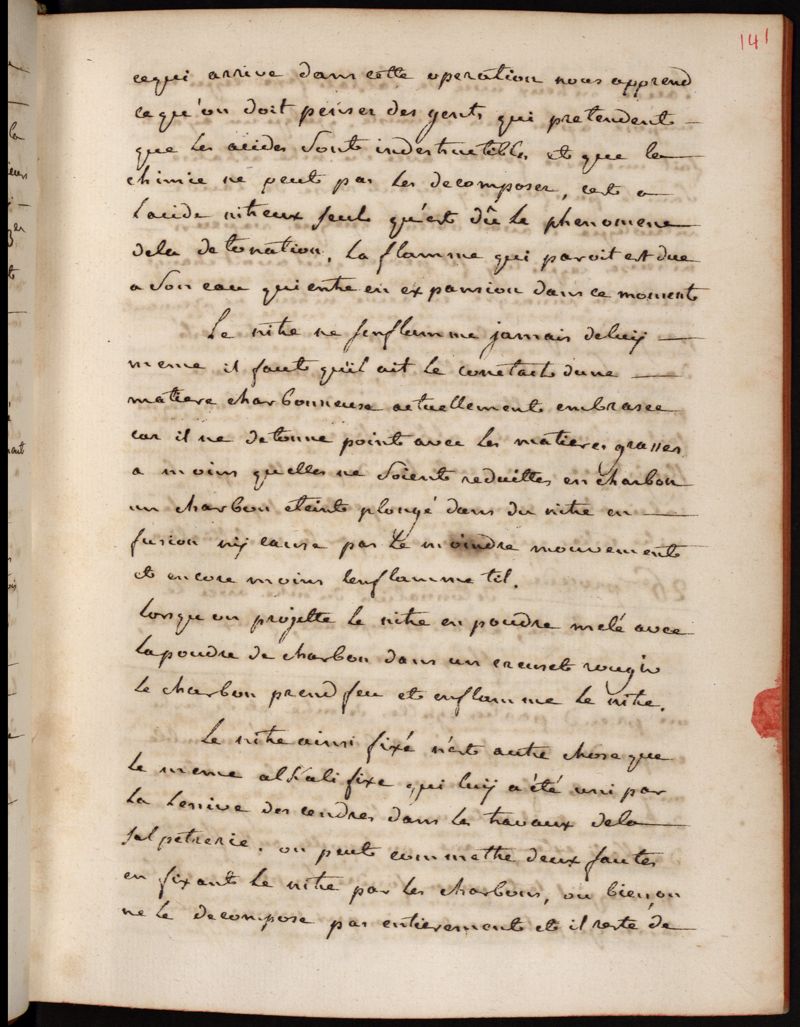 141
cequi arrive dans cette operation nous apprend
ce qu'on doit penser des gents qui pretendent
que les acides sont indestructibles et que la
chimie ne peut pas les decomposer, cest a
lacide nitreux seul qu'est dû le phenomene
dela detonation, la flamme qui paroit est due
a son eau qui entre en expansion dans ce moment
Le nitre ne senflamme jamais deluÿ
meme il faut qu'il ait le contact dune
matiere charbonneuse actuellement embrasee
car il ne detonne point avec les matieres grasses
a moins quelles ne soient reduittes en charbon
un charbon eteint plongé dans du nitre en
fusion nÿ cause pas le moindre mouvement
et encore moins lenflamme til.
lorsqu on projette le nitre en poudre melé avec
la poudre de charbon dans un creuset rougir
le charbon prend feu et enflamme le nitre.
Le nitre ainsi fixé n'est autre chose que
le meme alkali fixe qui luÿ a été uni par
la lessive des cendres dans les travaux dela
salpetrerie. on peut commettre deux fautes
en fixant le nitre par les charbons, ou bien on
ne le decompose pas entierement et il reste de